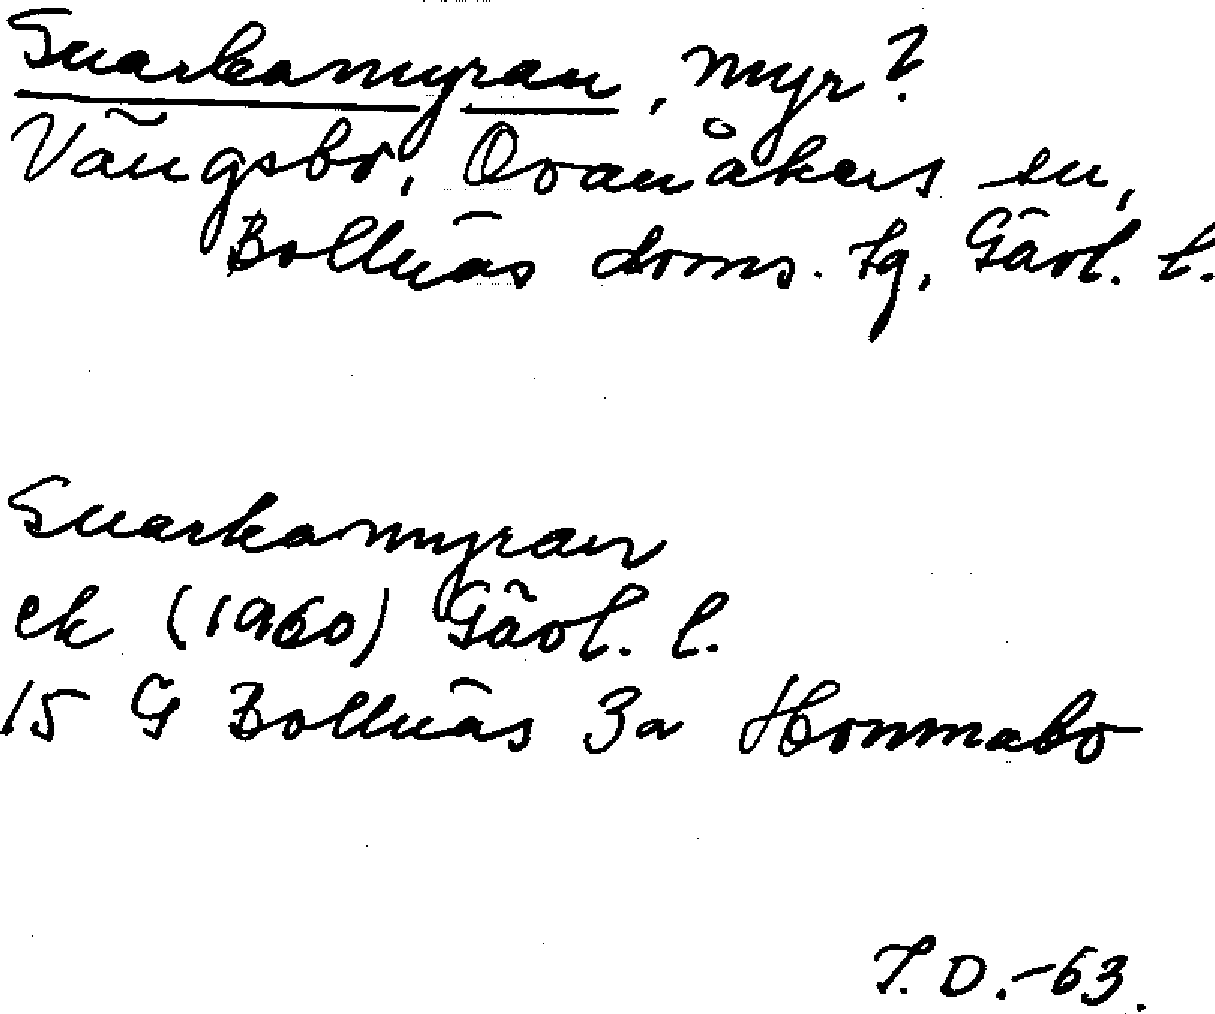 Snarkamyran, myr?
Vängsbo, Ovanåkers sn,
Bollnäs doms. fg, Gävl. l.
Snarkamyran
ek (1960) Gävl. l.
15 G Bollnäs 3a Hommabo
T.D.-63.